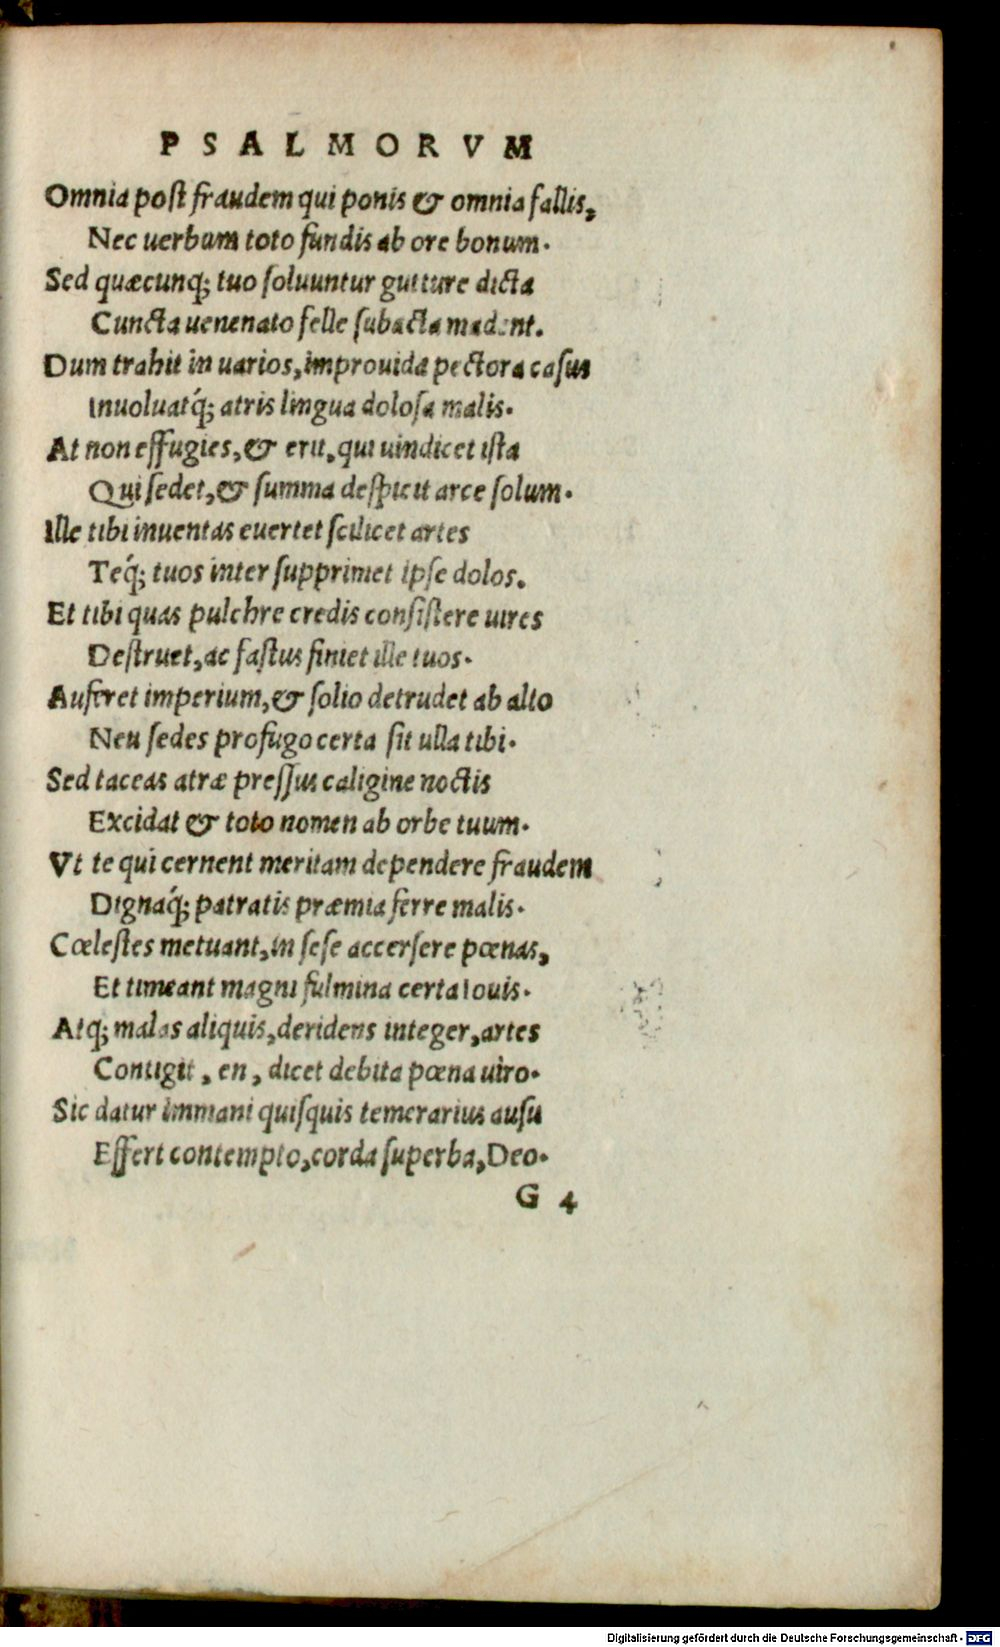 PSALMORVM
Omnia post fraudem qui ponis & omnia fallis,
Nec uerbum toto fundis ab ore bonum.
Sed quæcunq; tuo soluuntur gutture dicta
Cuncta uenenato felle subacta madent.
Dum trahit in uarios, improuida pectora casus
Inuoluatq́; atris lingua dolosa malis.
At non effugies, & erit, qui uindicet ista
Qui sedet, & summa despicit arce solum.
Ille tibi inuentas euertet scilicet artes
Teq́; tuos inter supprimet ipse dolos.
Et tibi quas pulchre credis consistere uires
Destruet, ac fastus finiet ille tuos.
Auferet imperium, & solio detrudet ab alto
Neu sedes profugo certa sit ulla tibi.
Sed taceas atræ pressus caligine noctis
Excidat & toto nomen ab orbe tuum.
Vt te qui cernent meritam dependere fraudem
Dignaq́; patratis præmia ferre malis.
Cœlestes metuant, in sese accersere pœnas,
Et timeant magni fulmina certa Iouis.
Atq; malas aliquis, deridens integer, artes
Contigit, en, dicet debita pœna uiro.
Sic datur immani quisquis temerarius ausu
Effert contempto, corda superba, Deo.
G 4
Digitalisierung gefördert durch die Deutsche Forschungsgemeinschaft - DFG